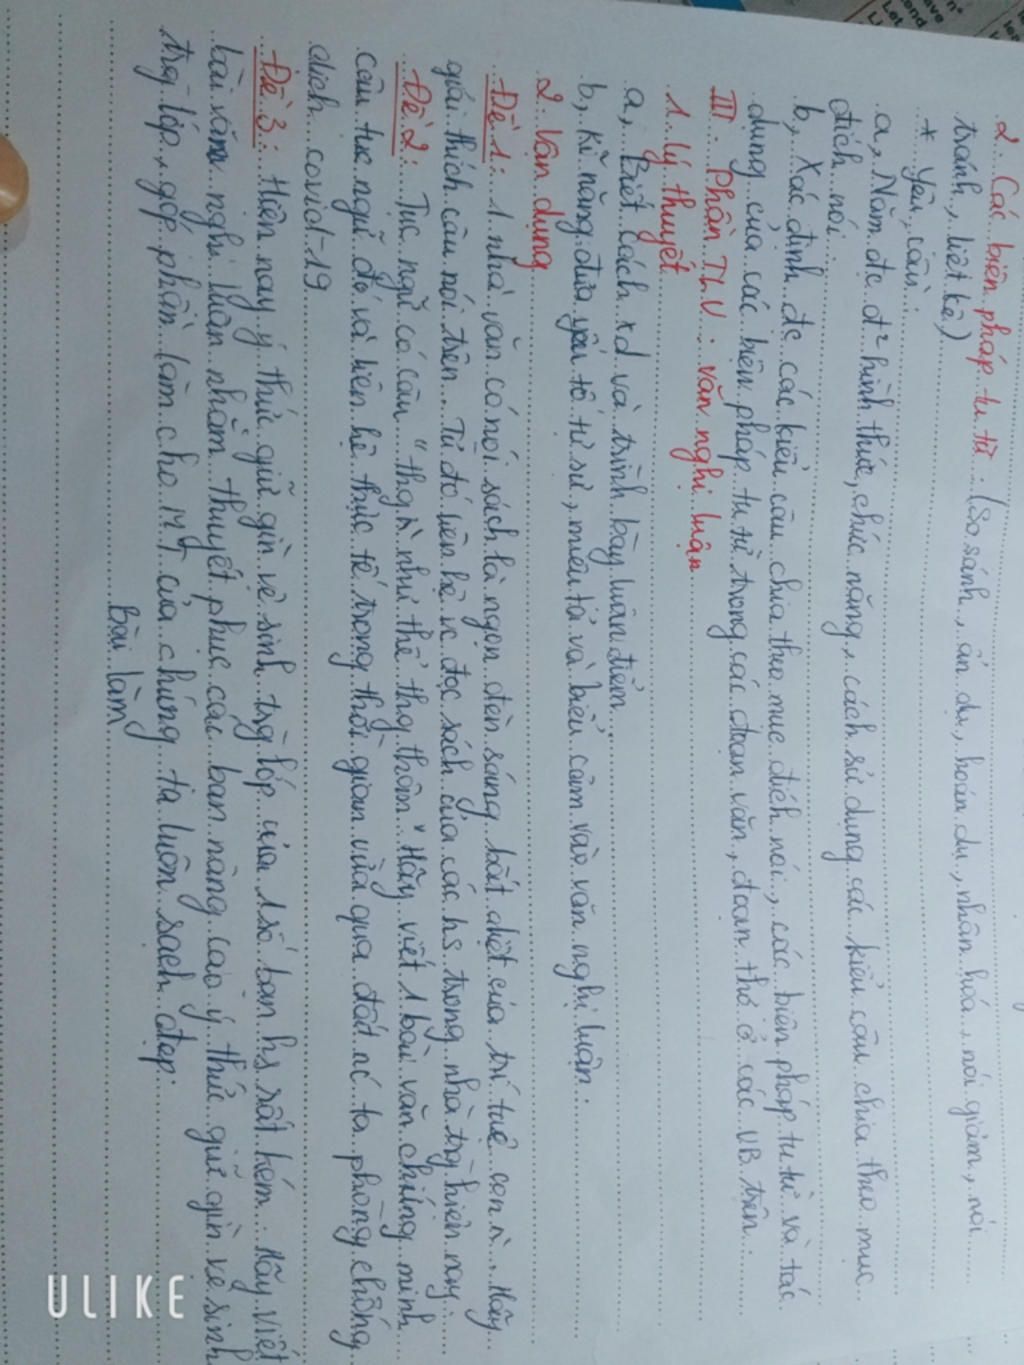 2. Các biện pháp tu từ: (So sánh, ẩn dụ, hoán dụ, nhân hóa, nói giảm, nói
tránh, liệt kê)
* Yêu cầu:
a, Nắm đc đ² hình thức, chức năng, cách sử dụng các kiểu câu chia theo mục
đích nói.
b, Xác định đc các kiểu câu chia theo mục đích nói, các biện pháp tu từ và tác
dụng của các biện pháp tu từ trong các đoạn văn, đoạn thơ ở các VB trên.
III. Phần TLV: văn nghị luận
1. lý thuyết
a, Biết cách xd và trình bày luận điểm
b, Kĩ năng đưa yếu tố tự sự, miêu tả và biểu cảm vào văn nghị luận.
2. Vận dụng
Đề 1: 1 nhà văn có nói sách là ngọn đèn sáng bất diệt của trí tuệ con n². Hãy
giải thích câu nói trên. Từ đó liên hệ vc đọc sách của các hs trong nhà trg hiện nay.
Đề 2: Tục ngữ có câu "thg n² như thể thg thân" Hãy viết 1 bài văn chứng minh
câu tục ngữ đó và liên hệ thực tế trong thời gian vừa qua đất nc ta phòng chống
dịch covid-19
Đề 3: Hiện nay ý thức giữ gìn vệ sinh trg lớp của 1 số bạn hs rất kém. Hãy viết
bài văn nghị luận nhằm thuyết phục các bạn nâng cao ý thức giữ gìn vệ sinh
trg lớp, góp phần làm cho MT của chúng ta luôn sạch đẹp.
Bài làm
ULIKE